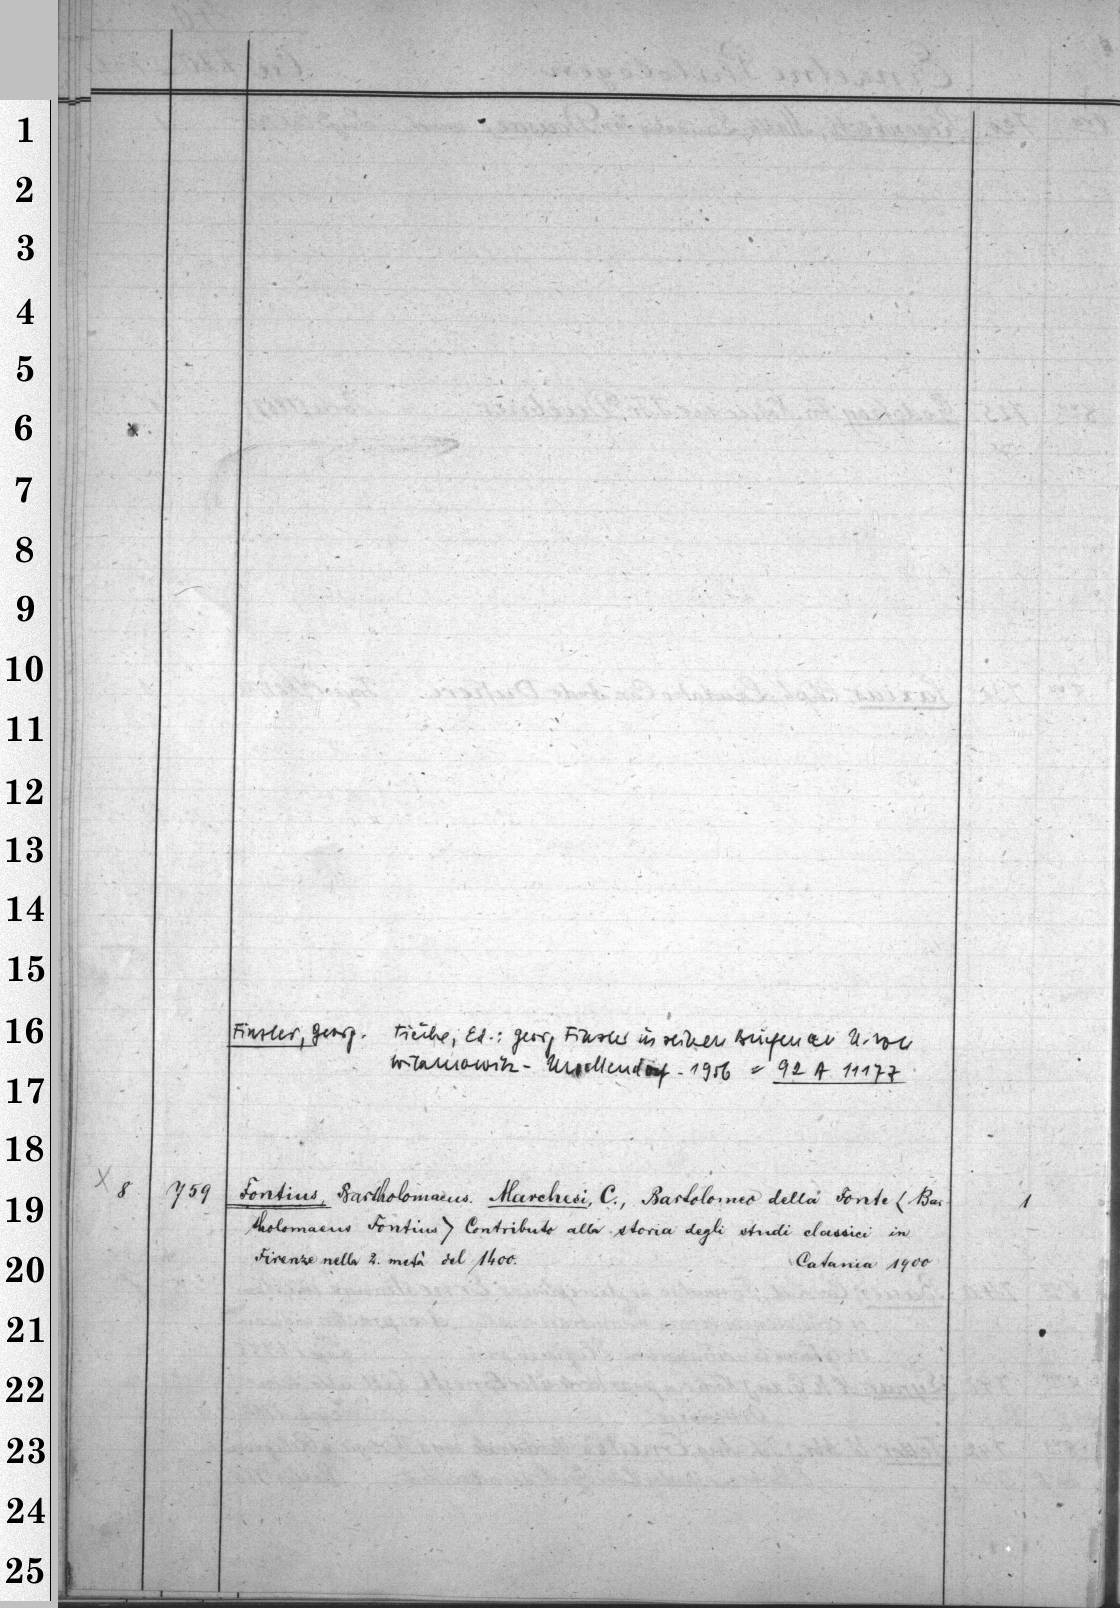 1
2
3
4
5
6
7
8
9
10
11
12
13
14
15
16
17
18
19
20
21
22
23
24
25
Finsler, Georg. Ed.: Georg Finsler in seinen Briefen an U. von
Wilamowitz - Moellendorf - 1956 = 92 A 11177
X 8 759 Fontius, Bartholomaeus. Marchesi, C., Bartolomeo della Fonte (Bar- 1
tholomaeus Fontius) Contributo alla storia degli studi classici in
Firenze nella 2. metà del 1400. Catania 1900